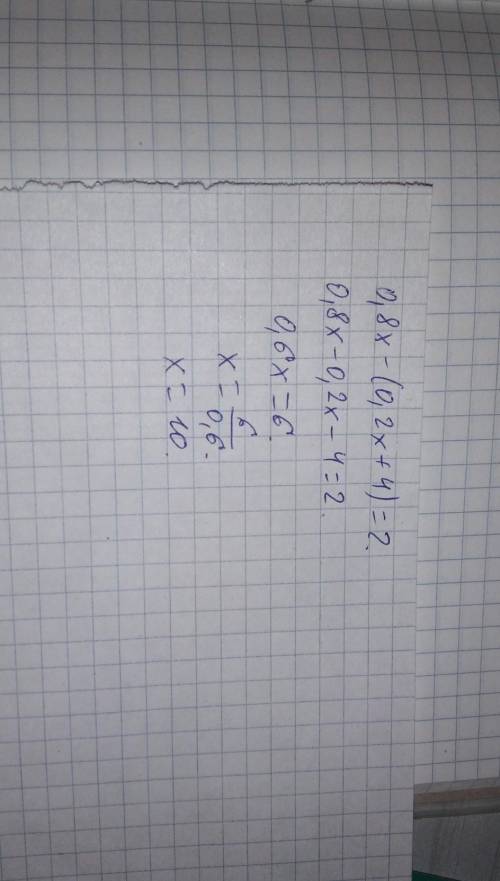 0,8x - (0,2x + 4) = 2.
0,8x - 0,2x - 4 = 2.
0,6x = 6.
x = 6/0,6.
x = 10.